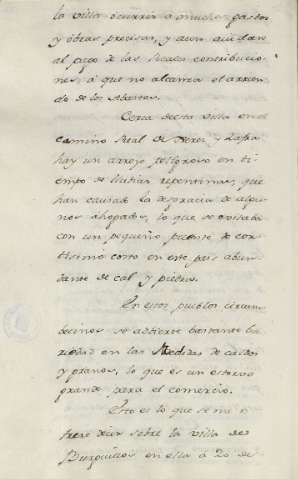 la villa ocurrir a muchos gastos
y obras precisas, y aun ayudar
al pago de las Reales contribucio
nes, á que no alcanza el arren
do de los Abastos.
Cerca de esta villa en el
camino Real de Xerez y Zafra
hay un arroyo peligroso en ti
empo de lluvias repentinas, que
han causado la desgracia de algu
nos ahogados, lo que se evitaba
con un pequeño puente de cor
tisimo costo en este pais abun
dante de cal y piedra.
En estos pueblos circum
becinos se advierte bastante ba
riedad en las Medidas de caldos
y granos, lo que es un estorvo
grande para el comercio.
Esto es lo que se me o
frece decir sobre la villa de
Burguillos en ella á 20 de